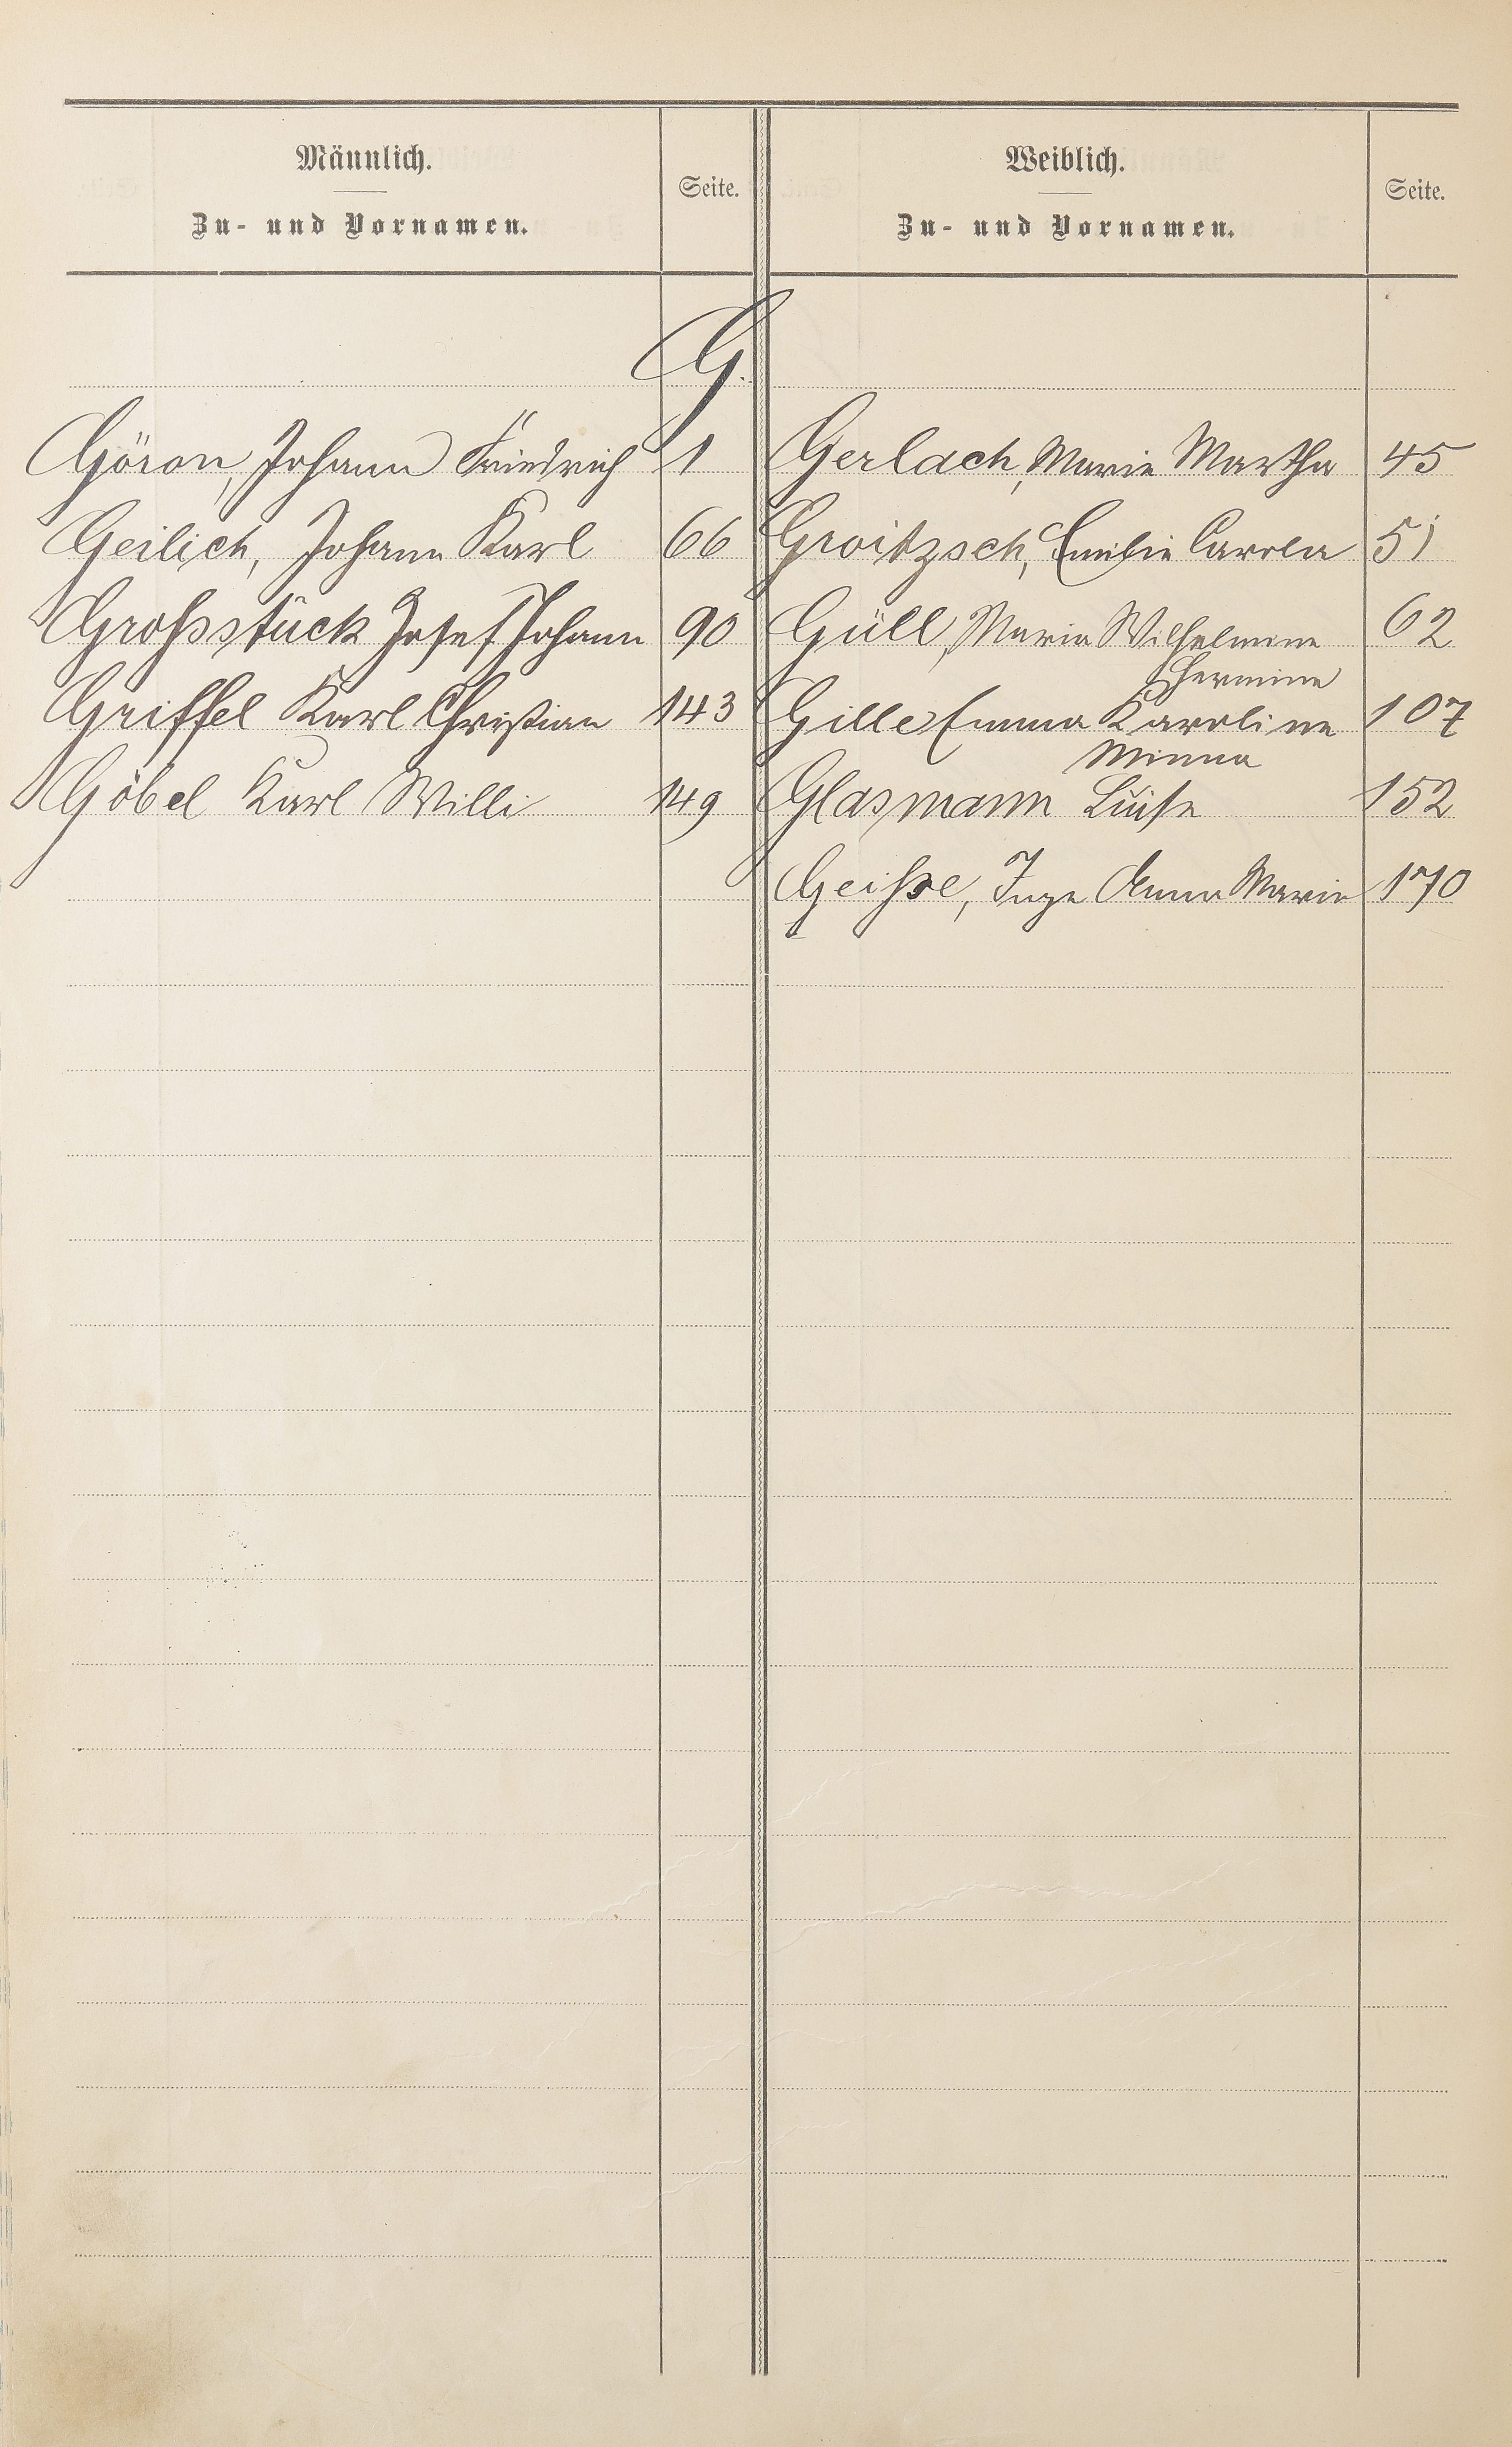 Männlich.
Zu- und Vornamen.
Seite.
Weiblich.
Zu- und Vornamen.
Seite.
G.
Göron, Johann Friedrich 1
Gerlach, Marie Martha 45
Geilich, Johann Karl 66
Groitzsch, Emilie Carola 51
Großstück Josef Johann 90
Güll, Maria Wilhelmine 62
Hermine
Griffel Karl Christian 143
Gille Emma Karoline 107
Minna
Göbel Karl Willi 149
Glasmann Luise 152
Geiße, Inge Anna Marie 170